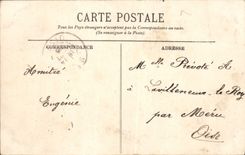 CARTE POSTALE
Tous les Pays étrangers n'acceptent pas la Correspondance au recto.
(Se renseigner à la Poste)
CORRESPONDANCE
ADRESSE
Amitiés
Eugénie
M lle Prévote A.
à Lavilleneuve le Roy
par Méru
Oise